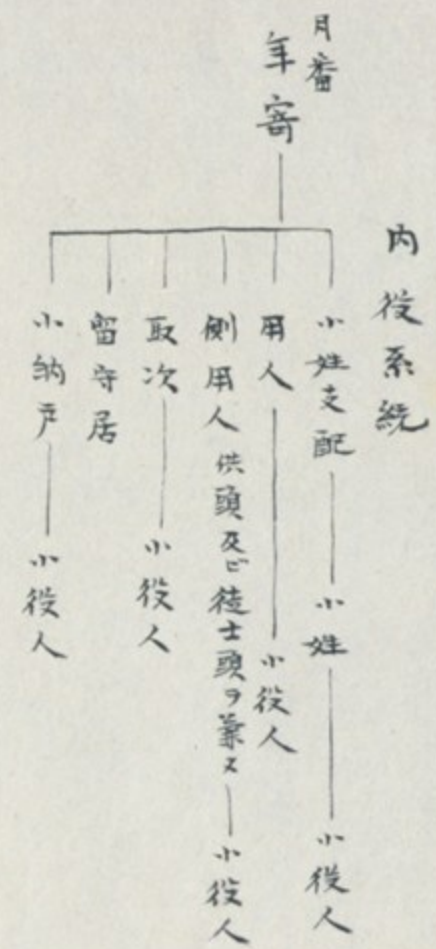 内役系統
月番
年寄
小姓支配 小姓 小役人
用人 小役人
側用人 供頭及ビ徒士頭ヲ兼ヌ 小役人
取次 小役人
留守居
小納戸 小役人